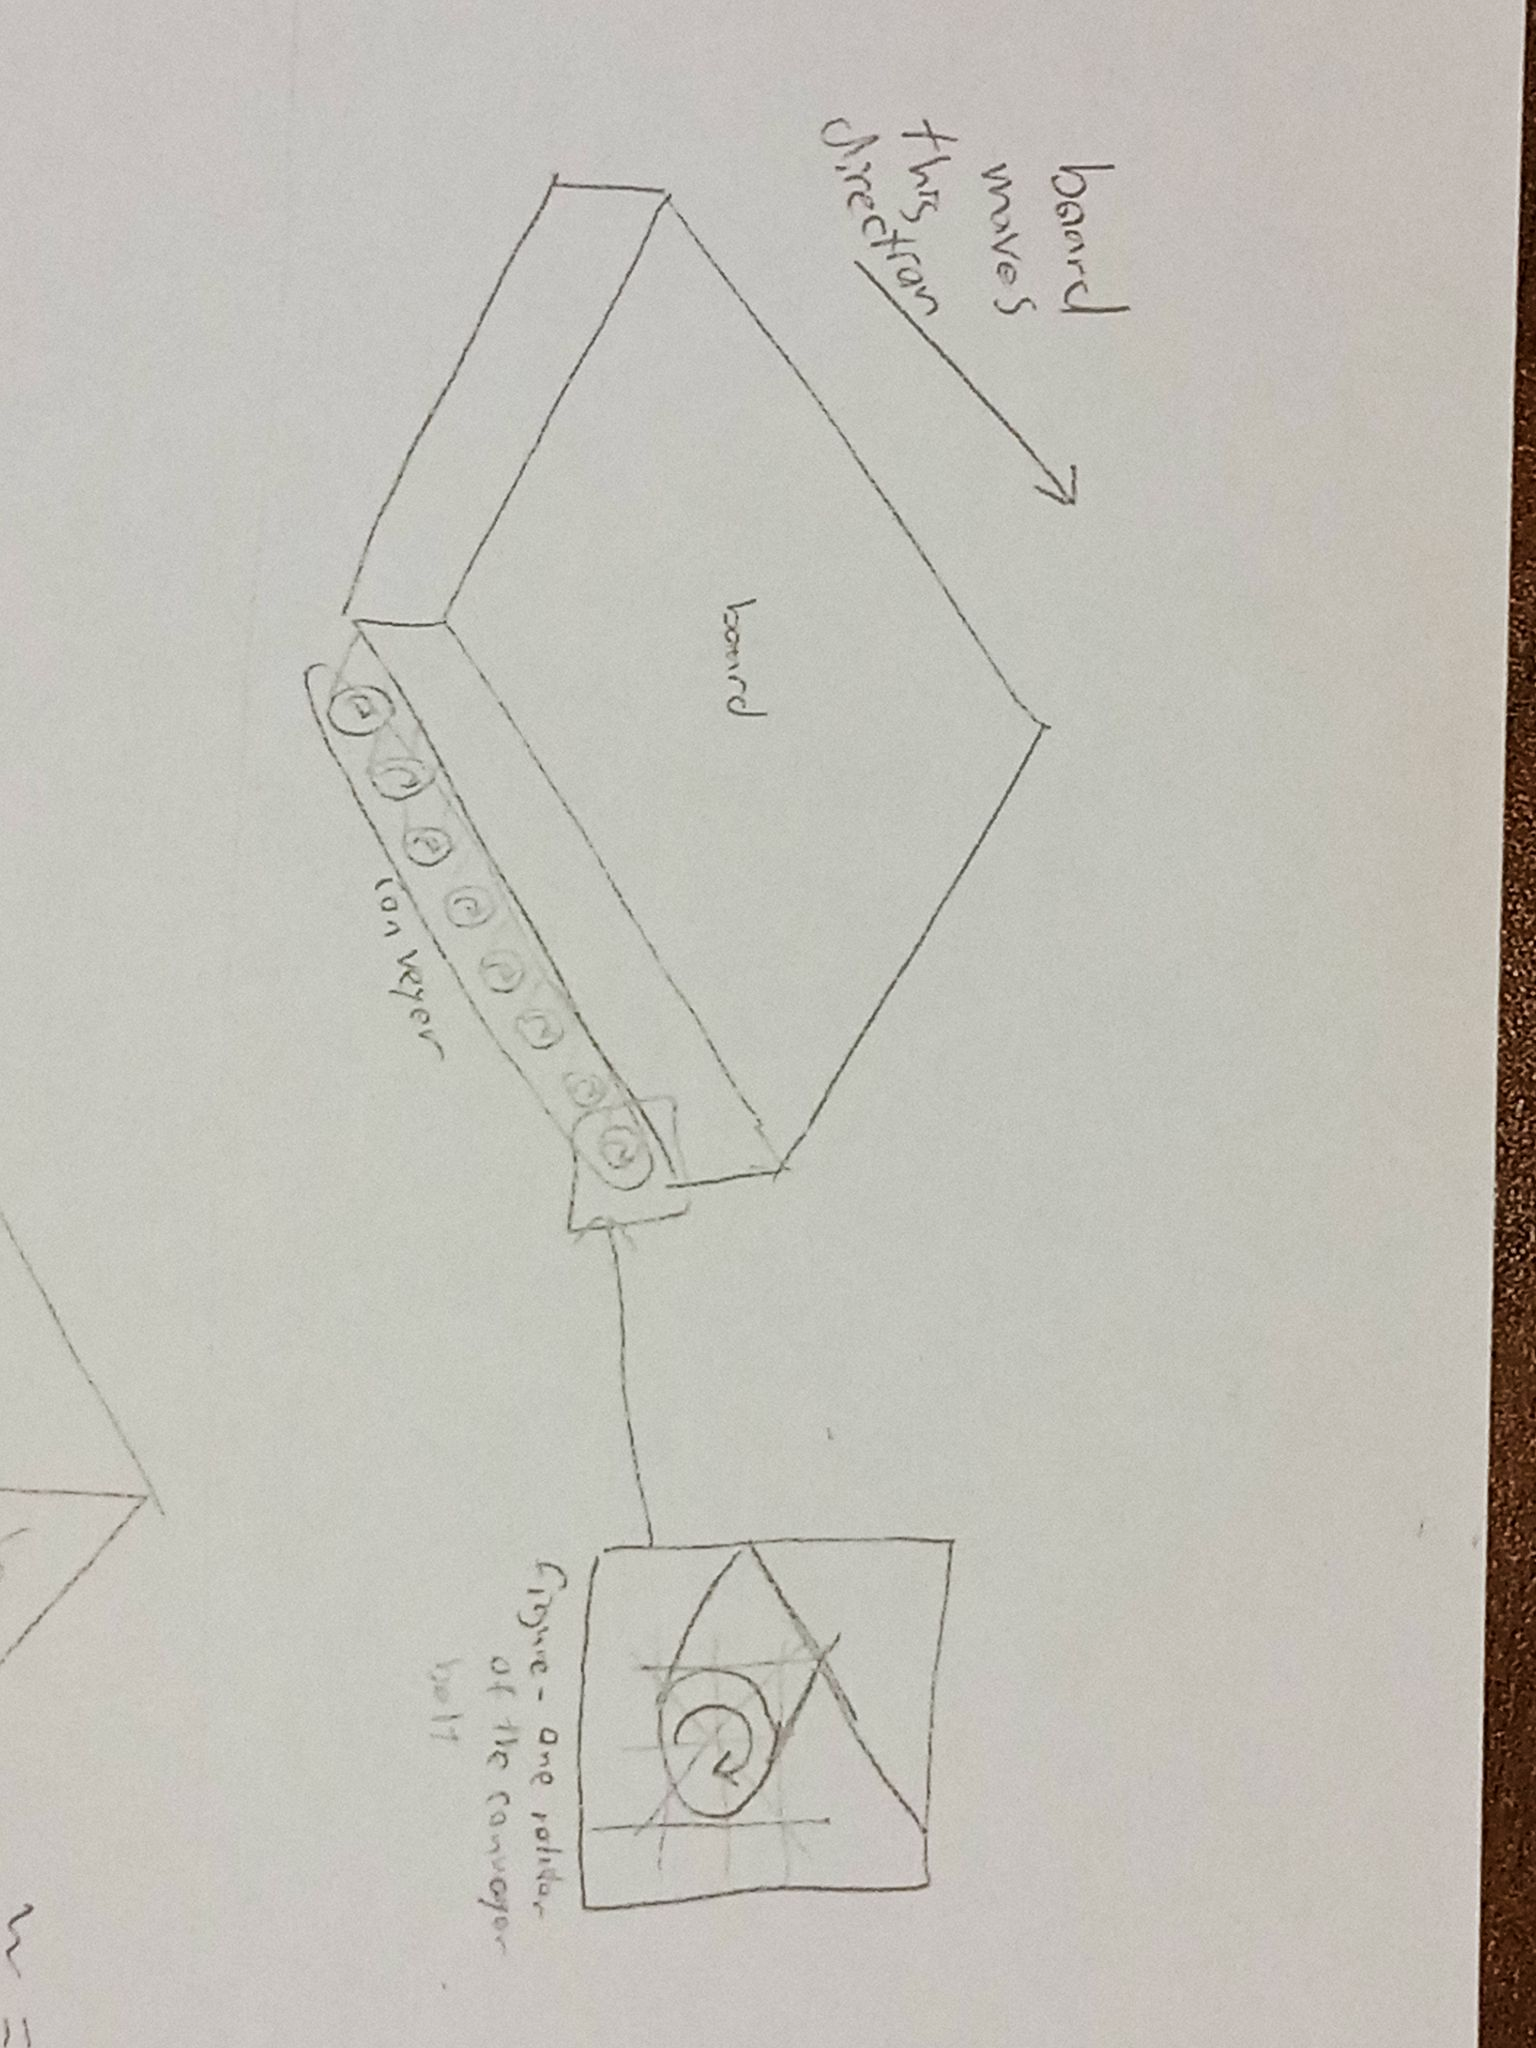 board
moves
this
direction
board
conveyer
figure - one rollar
of the conveyor
belt
=